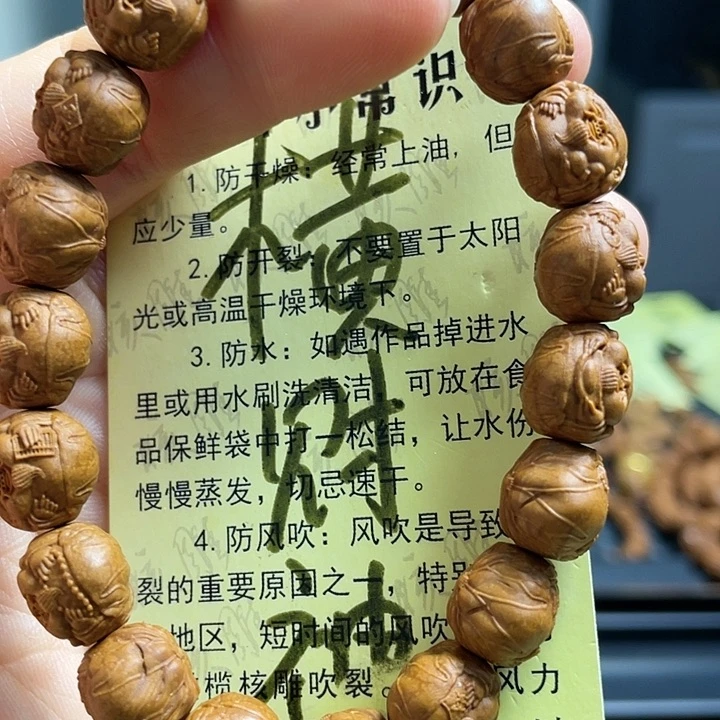 常识
1. 防干燥：经常上油，但
应少量。
2. 防开裂：不要置于太阳
光或高温干燥环境下。
3. 防水：如遇作品掉进水
里或用水刷洗清洁，可放在食
品保鲜袋中打一松结，让水份
慢慢蒸发，切忌速干。
4. 防风吹：风吹是导致
裂的重要原因之一，特别
地区，短时间的风吹
榄核雕吹裂。
风力
横财神